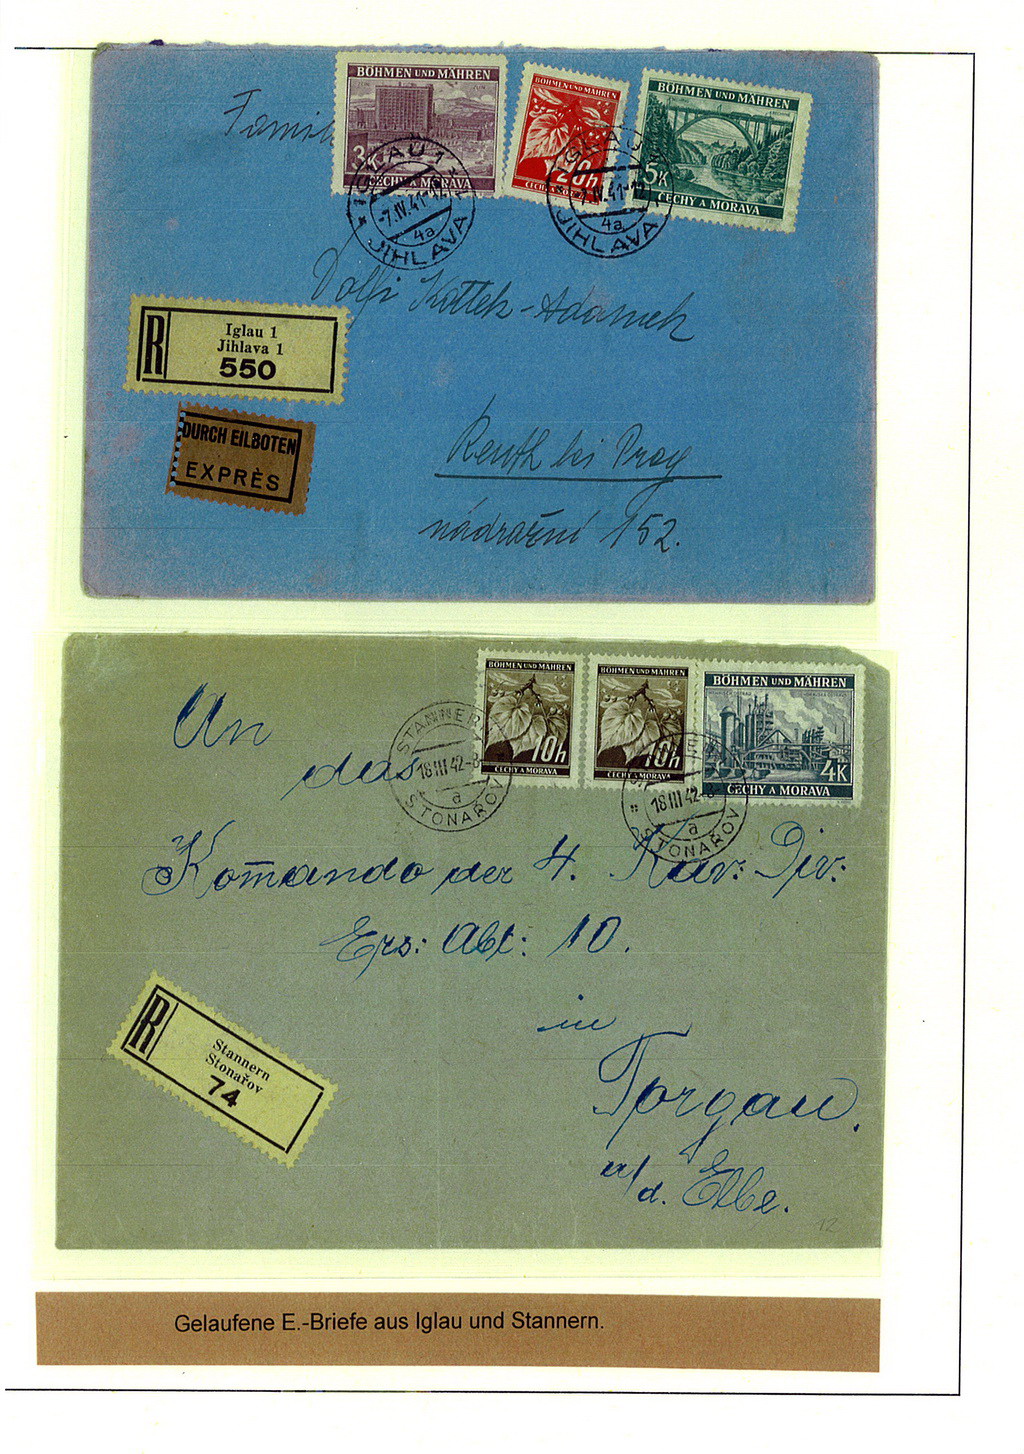 BÖHMEN UND MÄHREN
3K
ČECHY A MORAVA
BÖHMEN UND MÄHREN
20h
ČECHY A MORAVA
BÖHMEN UND MÄHREN
5K
ČECHY A MORAVA
IGLAU 1
-7.IV.41-12
4a
JIHLAVA 1
IGLAU 1
-7.IV.41-12
4a
JIHLAVA 1
Famil
Dolfi Kottek-Adamek
R
Iglau 1
Jihlava 1
550
DURCH EILBOTEN
EXPRÈS
bei Prag
nádražní 152.
BÖHMEN UND MÄHREN
10h
ČECHY A MORAVA
BÖHMEN UND MÄHREN
10h
ČECHY A MORAVA
BÖHMEN UND MÄHREN
4K
ČECHY A MORAVA
STANNERN
18 III 42-8
a
STONAŘOV
18 III 42-8
a
STONAŘOV
An
das
Komando der 4. Kav: Div:
Ers: Abt: 10.
in
Torgau.
a/d. Elbe.
R
Stannern
Stonařov
74
12
Gelaufene E.-Briefe aus Iglau und Stannern.